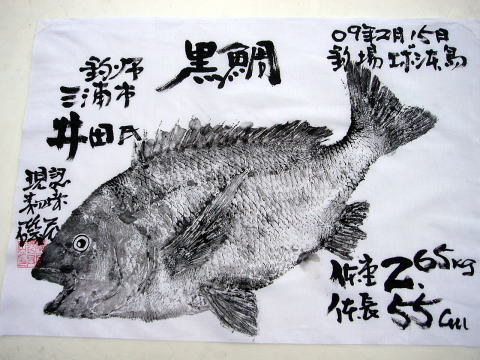 黒鯛
09年2月15日
釣場 球浜島
釣師
三浦市
井田氏
現認
磯
体重 2.65kg
体長 55cm